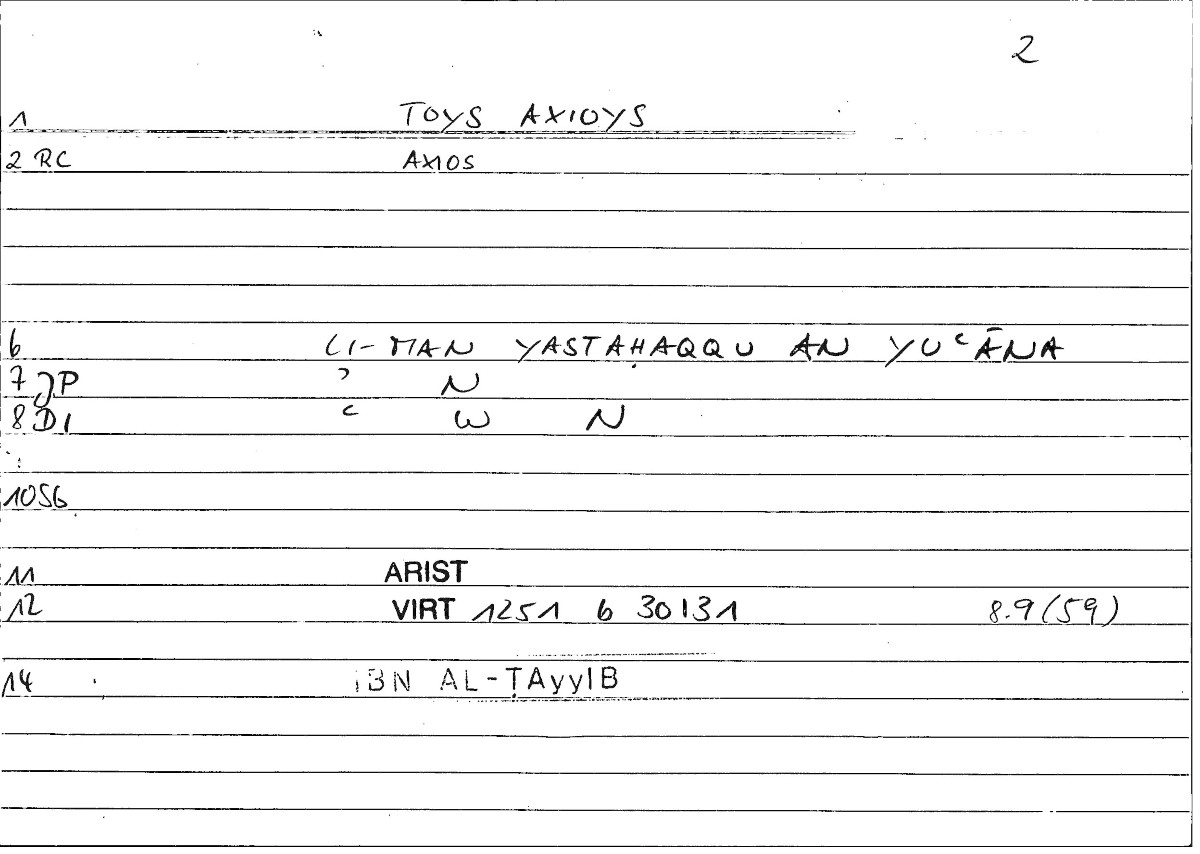 2
1 TOYS AXIOYS
2 RC AXIOS
6 LI-MAN YASTAḤAQQU AN YUʿĀNA
7 JP ʾ N
8 DI ʿ W N
10 SG
11 ARIST
12 VIRT 1251 b 30|31 8.9(59)
14 IBN AL-ṬAyyIB